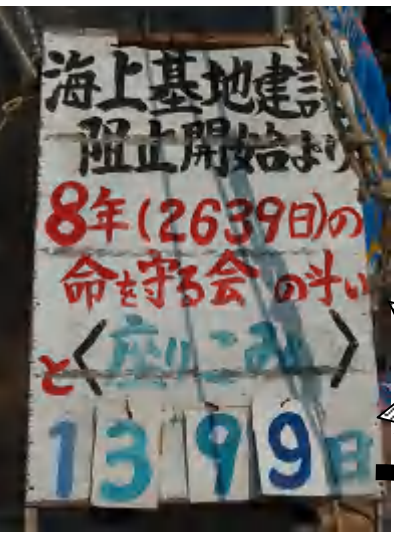 海上基地建設
阻止開始より
8年(2639日)の
命を守る会の斗い
と〈座りこみ〉
1399日